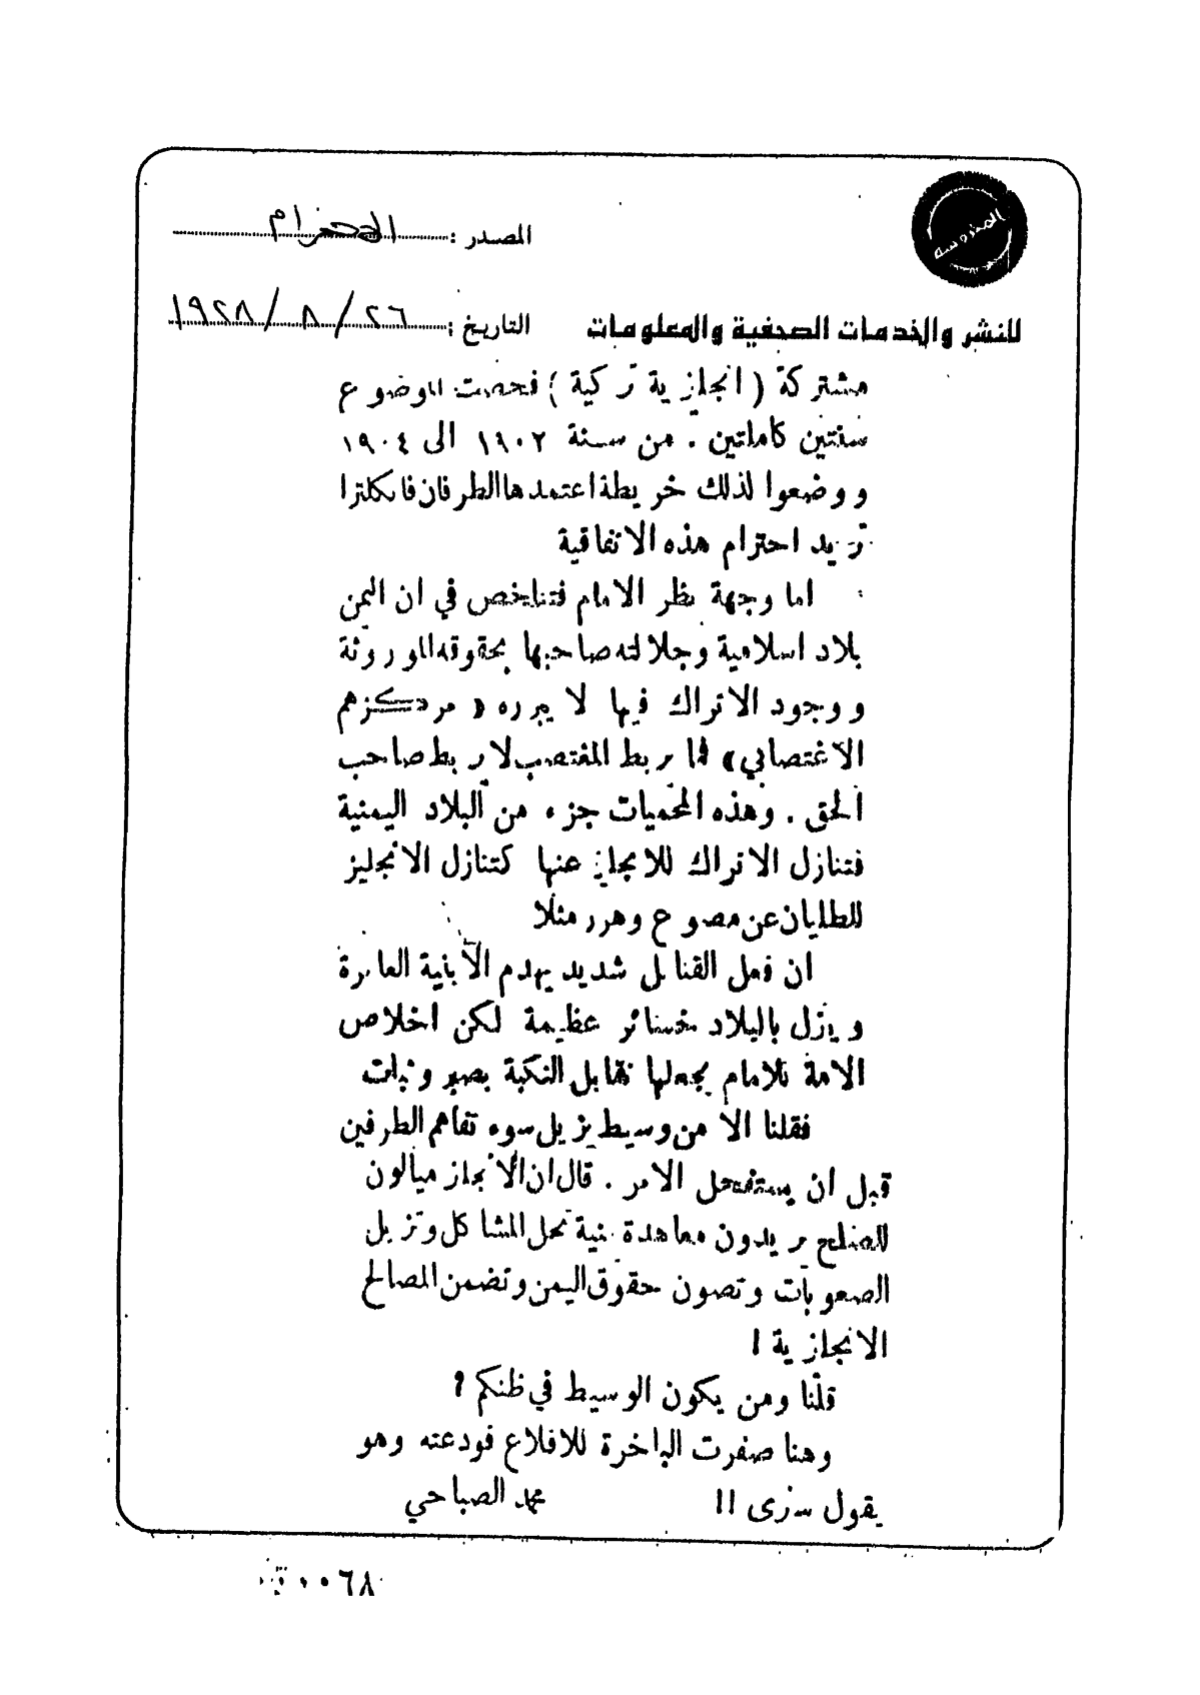 المحروسة
المصدر : الاهرام
للنشر والخدمات الصحفية والمعلومات
التاريخ : ٢٦ / ٨ / ١٩٢٨
مشتركة ( انجليزية تركية ) فحصت الموضوع
سنتين كاملتين . من سنة ١٩٠٢ الى ١٩٠٤
ووضعوا لذلك خريطة اعتمدها الطرفان فانكلترا
تريد احترام هذه الاتفاقية
اما وجهة نظر الامام فتتلخص في ان اليمن
بلاد اسلامية وجلالته صاحبها بحقوقه الموروثة
ووجود الاتراك فيها لا يبرره « مركزهم
الاغتصابي » فما يربط المغتصب لا يربط صاحب
الحق . وهذه المحميات جزء من البلاد اليمنية
فتنازل الاتراك للانجليز عنها كتنازل الانجليز
للطليان عن مصوع وهرر مثلا
ان فعل القنابل شديد يهدم الابنية العامرة
وينزل بالبلاد خسائر عظيمة لكن اخلاص
الامة للامام يجعلها تقابل النكبة بصبر وثبات
فقلنا الا من وسيط يزيل سوء تفاهم الطرفين
قبل ان يستفحل الامر . قال ان الانجليز ميالون
للصلح يريدون معاهدة تحل المشاكل وتزيل
الصعوبات وتصون حقوق اليمن وتضمن المصالح
الانجليزية !
قلنا ومن يكون الوسيط في ظنكم ؟
وهنا صفرت الباخرة للاقلاع فودعته وهو
يقول سنرى !! محمد الصباحي
٠٠٦٨